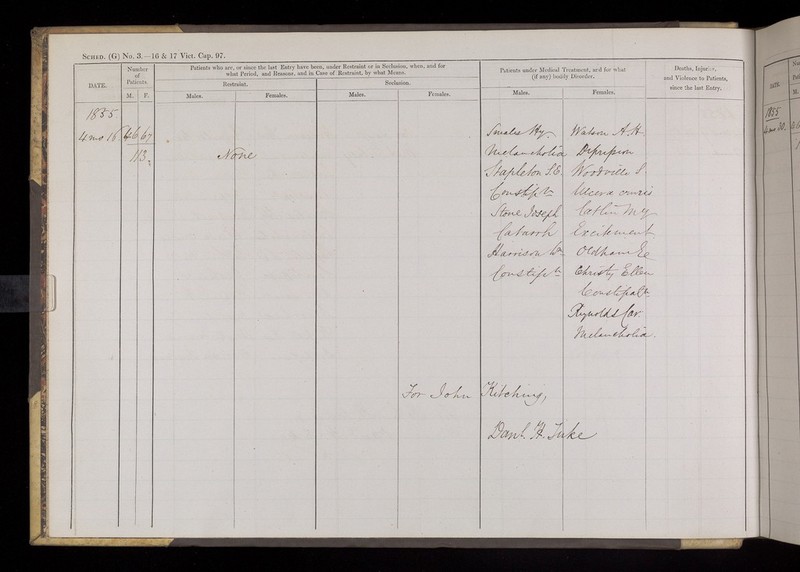 SCHED. (G) No. 3.—16 & 17 Vict. Cap. 97.
DATE.
Number of Patients.
M. F.
Patients who are, or since the last Entry have been, under Restraint or in Seclusion, when, and for
what Period, and Reasons, and in Case of Restraint, by what Means.
Restraint.
Seclusion.
Males. Females. Males. Females.
Patients under Medical Treatment, and for what
(if any) bodily Disorder.
Males. Females.
Deaths, Injuries,
and Violence to Patients,
since the last Entry.
1855
4 mo 16 46 67
113
None
Smales Hy Watson A. H.
Melancholia Depression
Stapleton Woodville S.
Constiptn
Stone Joseph Catlin My
Catarrh Excitement
Harrison Wm Oldham
Constiptn Christy Ellen
Constipatn
Reynolds Car.
Melancholia.
For John Kitching,
Danl. H. Tuke
DATE.
M.
1855
4 mo 30.